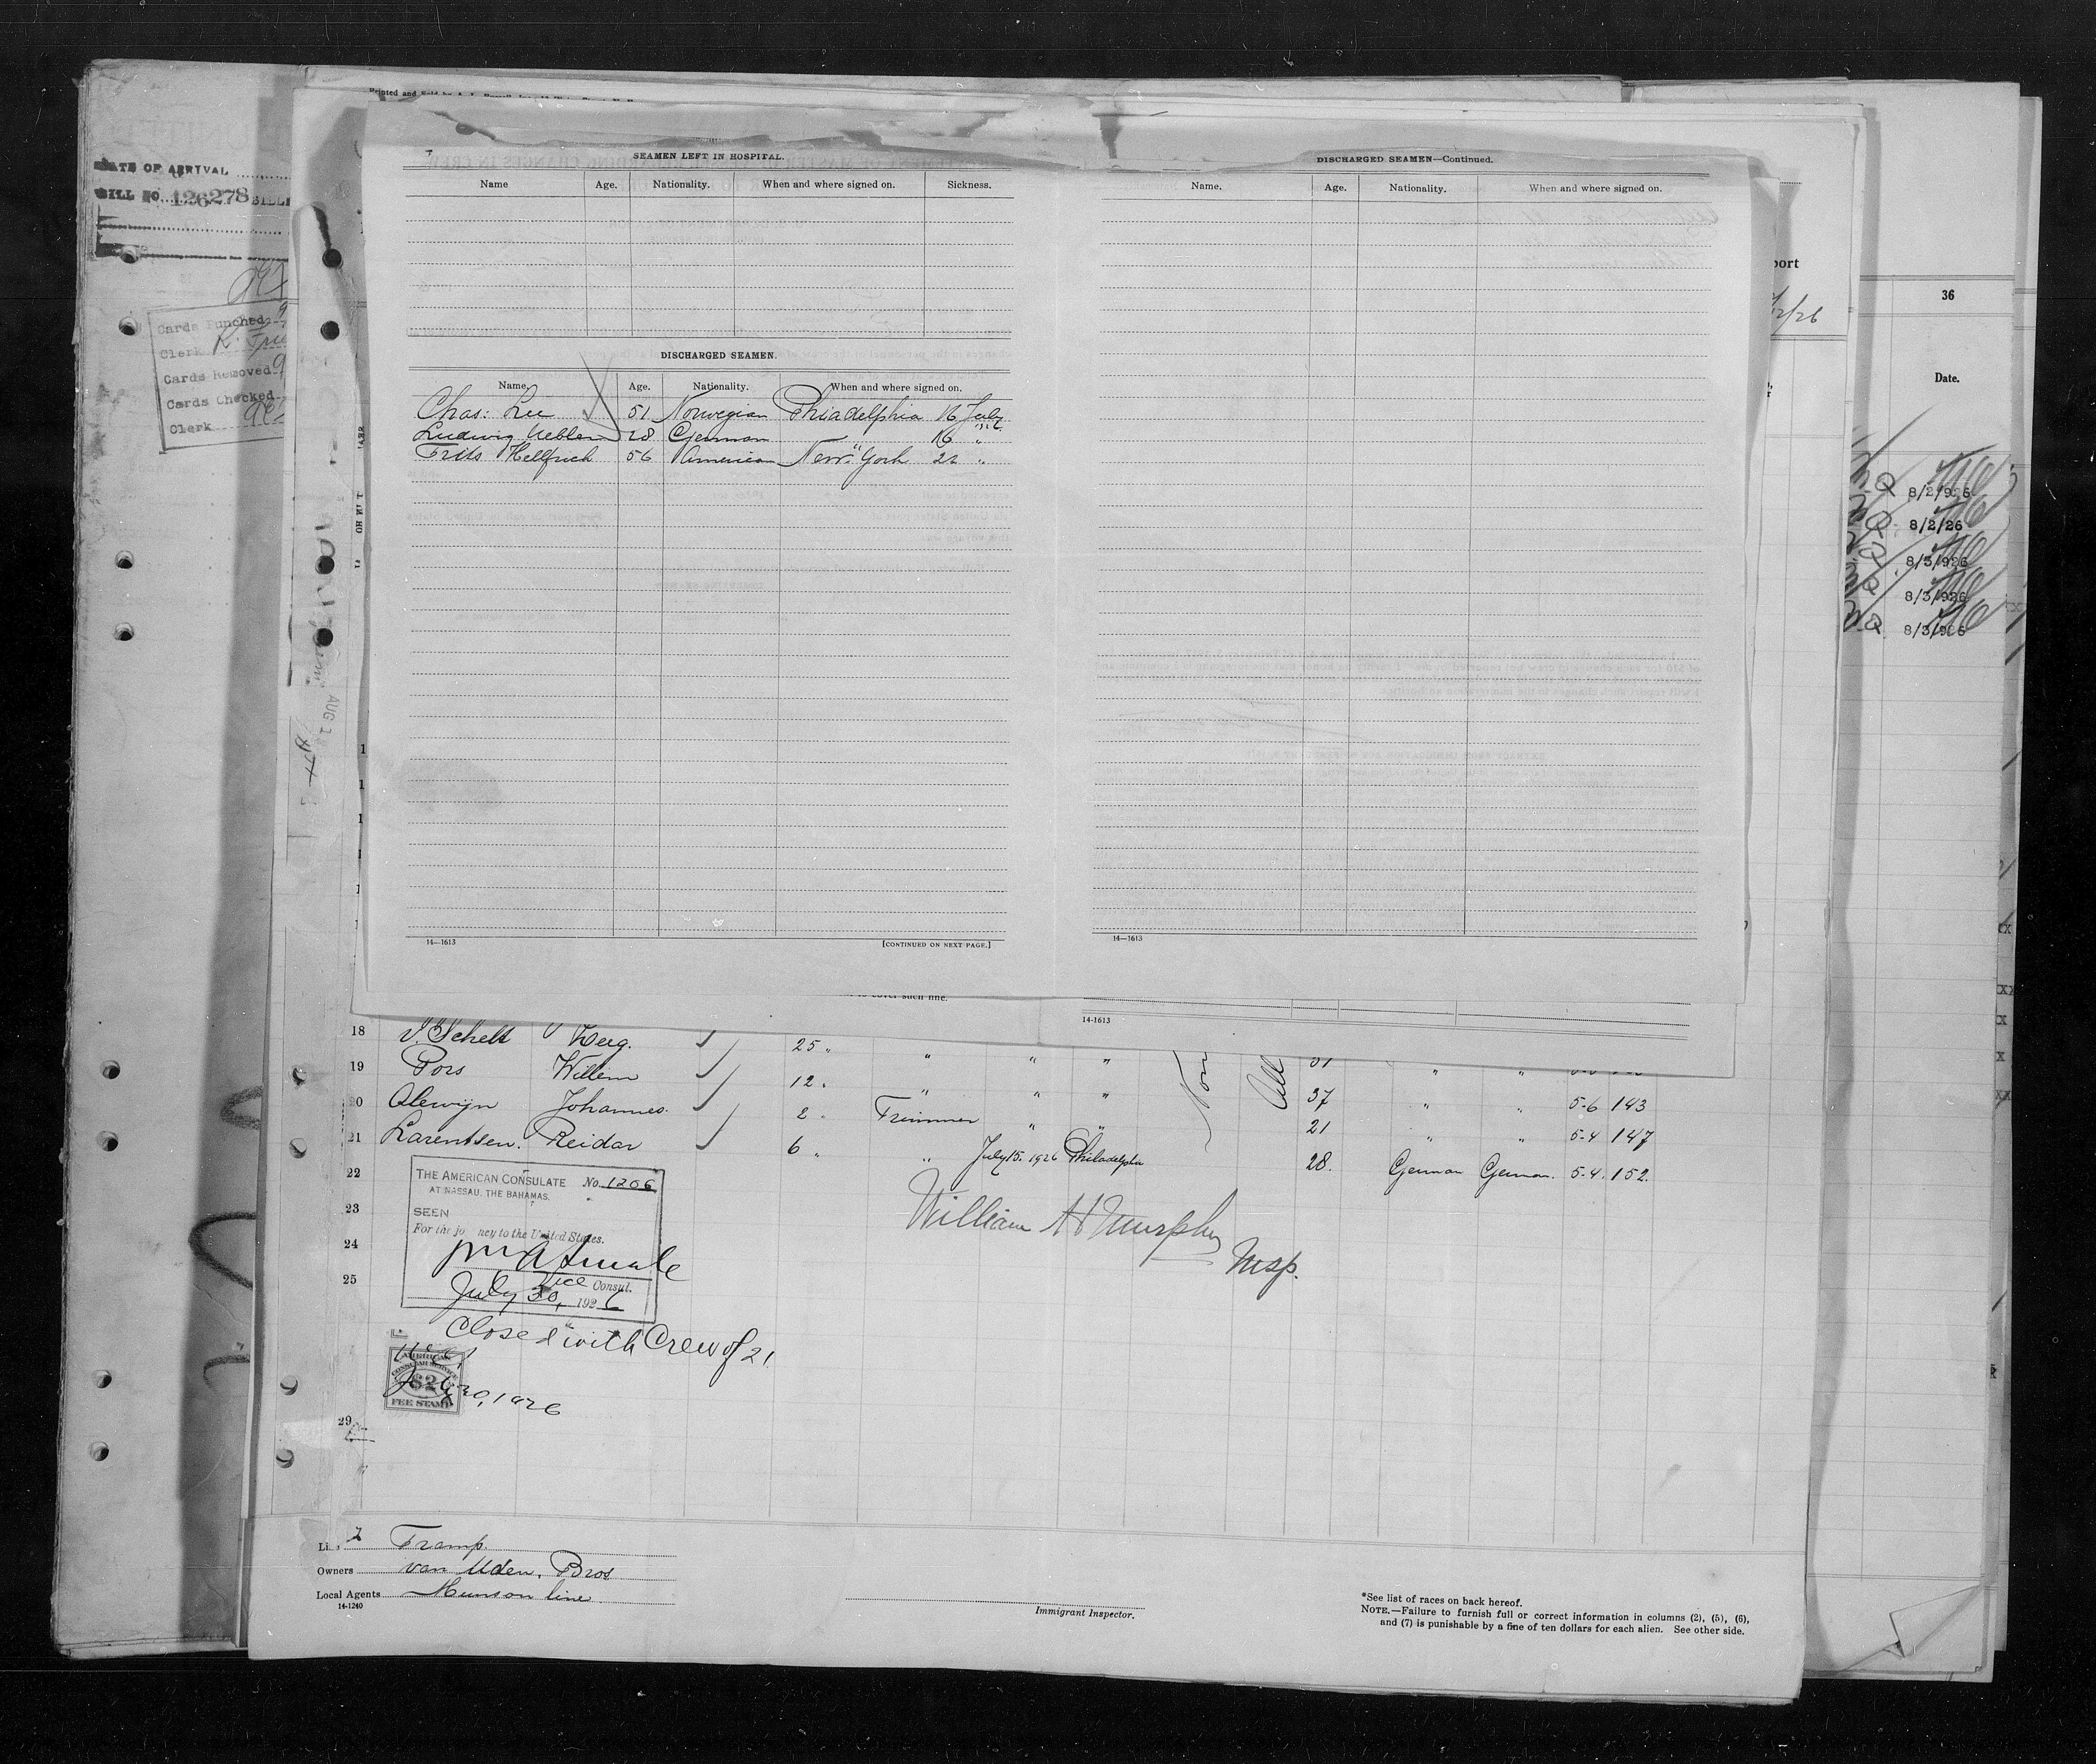 Printed and Sold by
DATE OF ARRIVAL
BILL NO. 126278
Cards Punched
Clerk
Cards Removed
Cards Checked
Clerk
SEAMEN LEFT IN HOSPITAL.
Name Age. Nationality. When and where signed on. Sickness.
DISCHARGED SEAMEN.
Name. Age. Nationality. When and where signed on.
Chas: Lee 51 Norwegian Phiadelphia 16 July
Ludwig 28 German " 16 "
Frits Hellfrich 56 American New York 21 "
14—1613 [CONTINUED ON NEXT PAGE.]
DISCHARGED SEAMEN—Continued.
Name. Age. Nationality. When and where signed on.
14—1613
port
36
Date.
8/2/926
8/2/26
8/3/926
8/3/926
8/3/926
AUG
to cover such fine.
14-1613
18 v. Schelt 25 " " " "
19 Pors Willem 12 " " " " 37 " " 5-6 143
20 Alewijn Johannes. 2 " Trimmer " " 21 " " 5-4 147
21 Larentsen. Reidar 6 " " July 15. 1926 Philadelpha 28. German German. 5-4. 152.
22
23
24
25
THE AMERICAN CONSULATE No. 1206
AT NASSAU, THE BAHAMAS.
SEEN
For the jo ney to the United States.
Vice Consul.
July 30, 1926
William H Murphy
Insp.
Closed with Crew of 21
AMERICAN
CONSULAR SERVICE
$2
FEE STAMP
July 30, 1926
29
Line Tramp.
Owners van Uden. Bros
Local Agents Munson line
14-1240
Immigrant Inspector.
*See list of races on back hereof.
NOTE.—Failure to furnish full or correct information in columns (2), (5), (6),
and (7) is punishable by a fine of ten dollars for each alien. See other side.